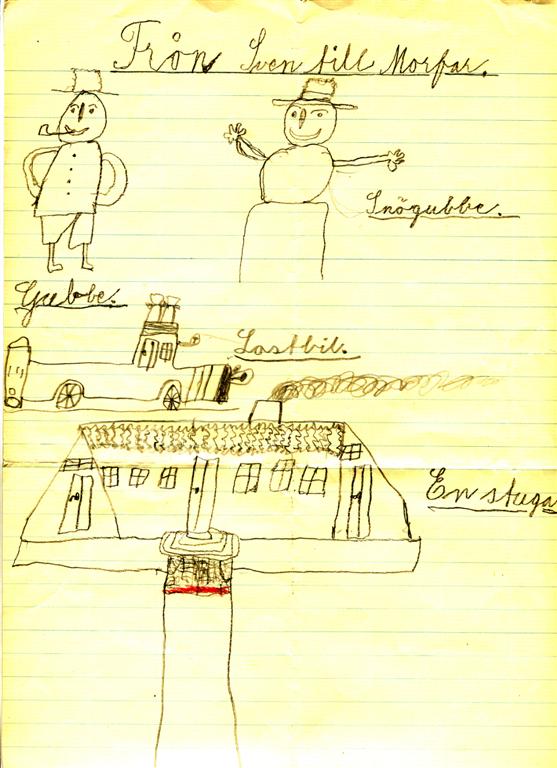 Från Sven till Morfar.
Snögubbe.
Gubbe.
Lastbil.
En stuga